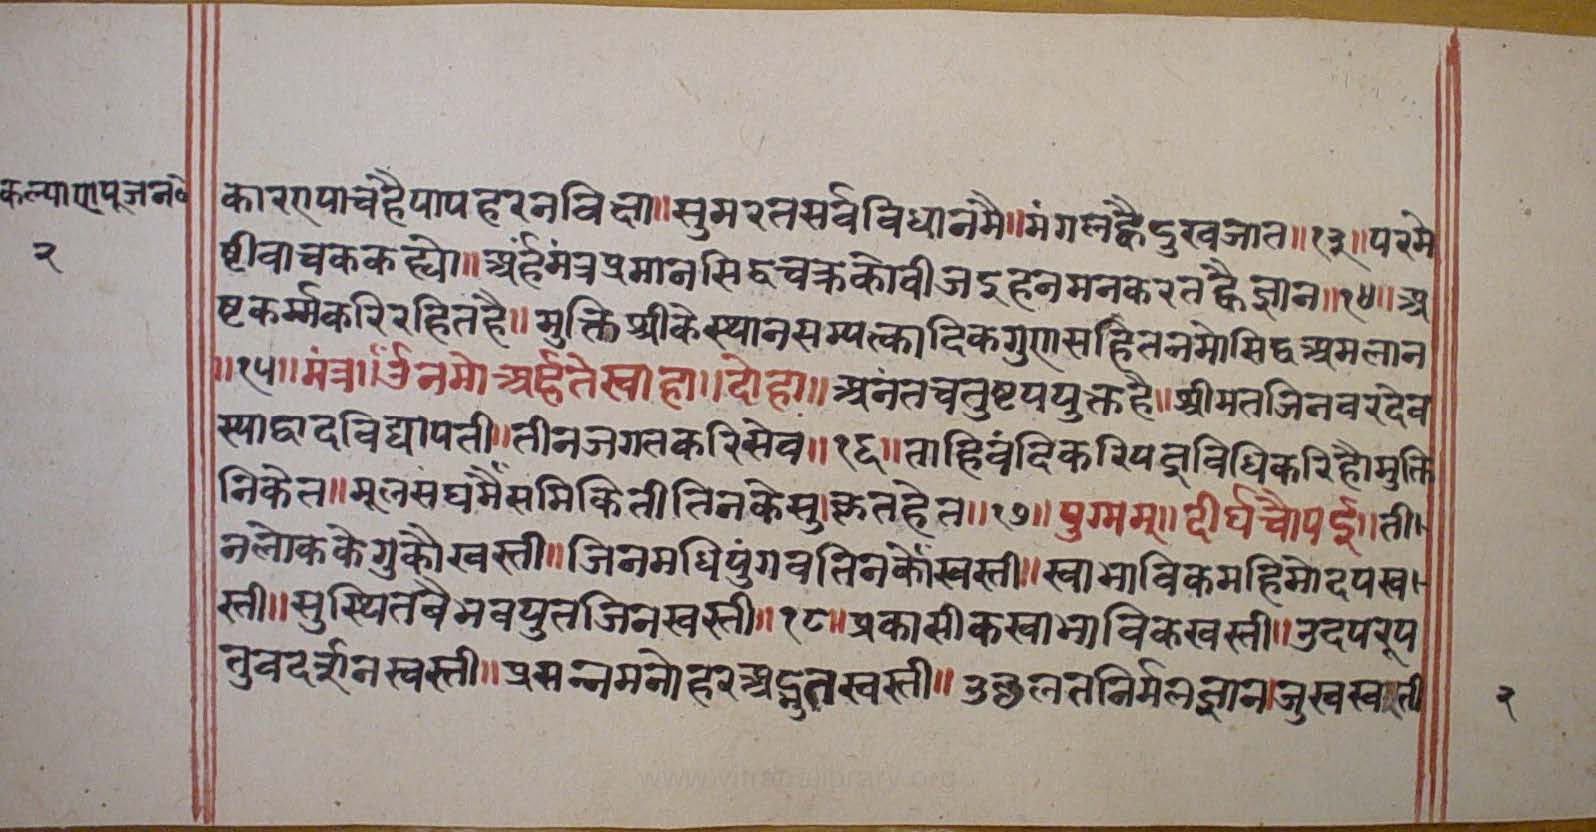 कल्याणपूजन॰
२
कारणपाचहैपापहरनविज्ञा॥सुमरतसर्वविधानमै॥मंगलह्वैदुखजात॥१३॥परमे
ष्टीवाचककह्यो॥अर्हंमंत्रप्रमानसिद्धचक्रकोवीजइहनमनकरतह्वैज्ञान॥१४॥अ
ष्टकर्म्मकरिरहितहै॥मुक्तिश्रीकेस्थानसम्यत्कादिकगुणसहितनमोसिद्धअमलान
॥१५॥मंत्र॥उंनमोअर्हतेस्वाहा॥दोहा॥अनंतचतुष्टययुक्तहै॥श्रीमतजिनवरदेव
स्याद्वादविद्यापती॥तीनजगतकरिसेव॥१६॥ताहिवंदिकरियज्ञविधिकरिहौमुक्ति
निकेत॥मूलसंघमैंसमिकितीतिनकेसुकृतहेत॥१७॥युग्मम्॥दीर्घचौपई॥ती
नलोककेगुरुकौस्वस्ती॥जिनमधिपुंगवतिनकौंस्वस्ती॥स्वाभाविकमहिमोदयस्व
स्ती॥सुस्थितवैभवयुतजिनस्वस्ती॥१८॥प्रकासीकस्वाभाविकस्वस्ती॥उदयरूप
तुवदर्शनस्वस्ती॥प्रसन्नमनोहरअद्भुतस्वस्ती॥उछलतनिर्मलज्ञानजुस्वस्वस्ती
२